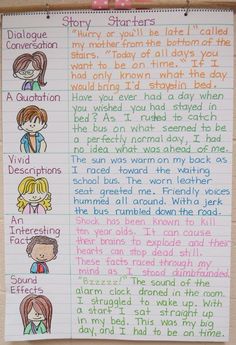 Story Starters
Dialogue
Conversation
"Hurry or you'll be late!" called
my mother from the bottom of the
stairs. "Today of all days you want
to be on time." If I
had only known what the day
would bring I'd stayed in bed.
A Quotation
Have you ever had a day when
you wished you had stayed in
bed? As I rushed to catch
the bus on what seemed to be
a perfectly normal day, I had
no idea what was ahead of me.
Vivid
Descriptions
The sun was warm on my back as
I raced toward the waiting
school bus. The worn leather
seat greeted me. Friendly voices
hummed all around. With a jerk
the bus rumbled down the road.
An
Interesting
Fact
Shock has been known to kill
ten year olds. It can cause
their brains to explode and their
hearts can stop dead still.
These facts raced through my
mind as I stood dumbfounded.
Sound
Effects
"Bzzzzz!" The sound of the
alarm clock droned in the room.
I struggled to wake up. With
a start I sat straight up
in my bed. This was my big
day, and I had to be on time.